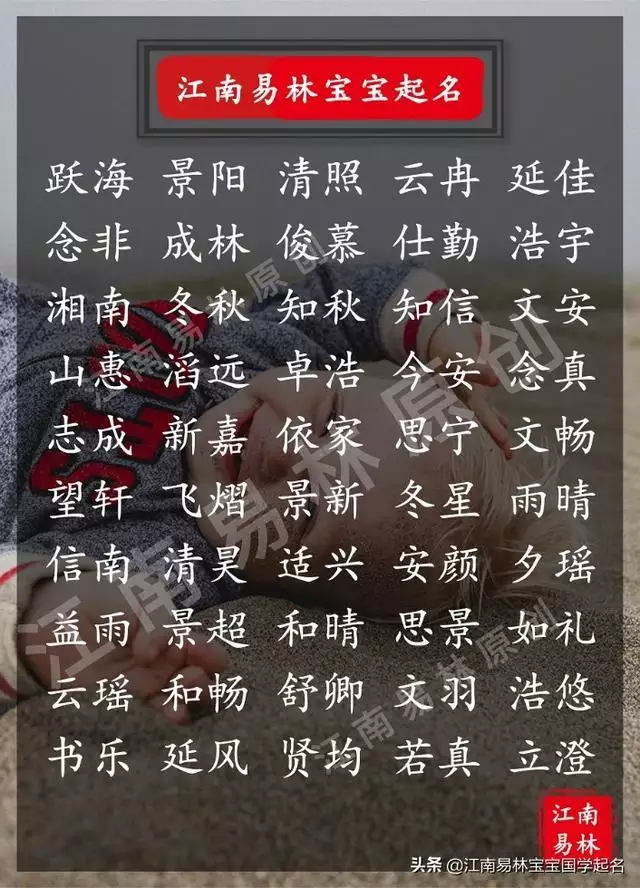 江南易林宝宝起名
跃海 景阳 清照 云冉 延佳
念非 成林 俊慕 仕勤 浩宇
湘南 冬秋 知秋 知信 文安
山惠 滔远 卓浩 今安 念真
志成 新嘉 依家 思宁 文畅
望轩 飞熠 景新 冬星 雨晴
信南 清昊 适兴 安颜 夕瑶
益雨 景超 和晴 思景 如礼
云瑶 和畅 舒卿 文羽 浩悠
书乐 延风 贤均 若真 立澄
江南易林原创
江南易林原创
江南易林原创
江南
易林
头条 @江南易林宝宝国学起名